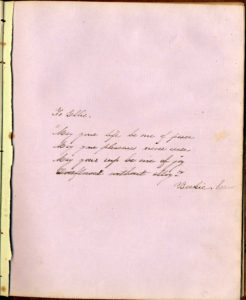 To Ellie.
"May your life be one of peace
May your pleasures never cease
May your cup be one of joy
without alloy"